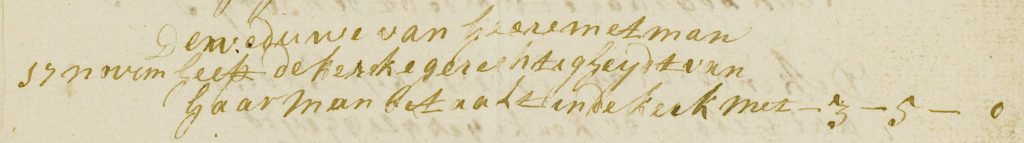 De weduwe van heere metman
17 n heeft de kerke gerechtigheydt van
haar man betaalt in de kerk met – 3 – 5 – 0